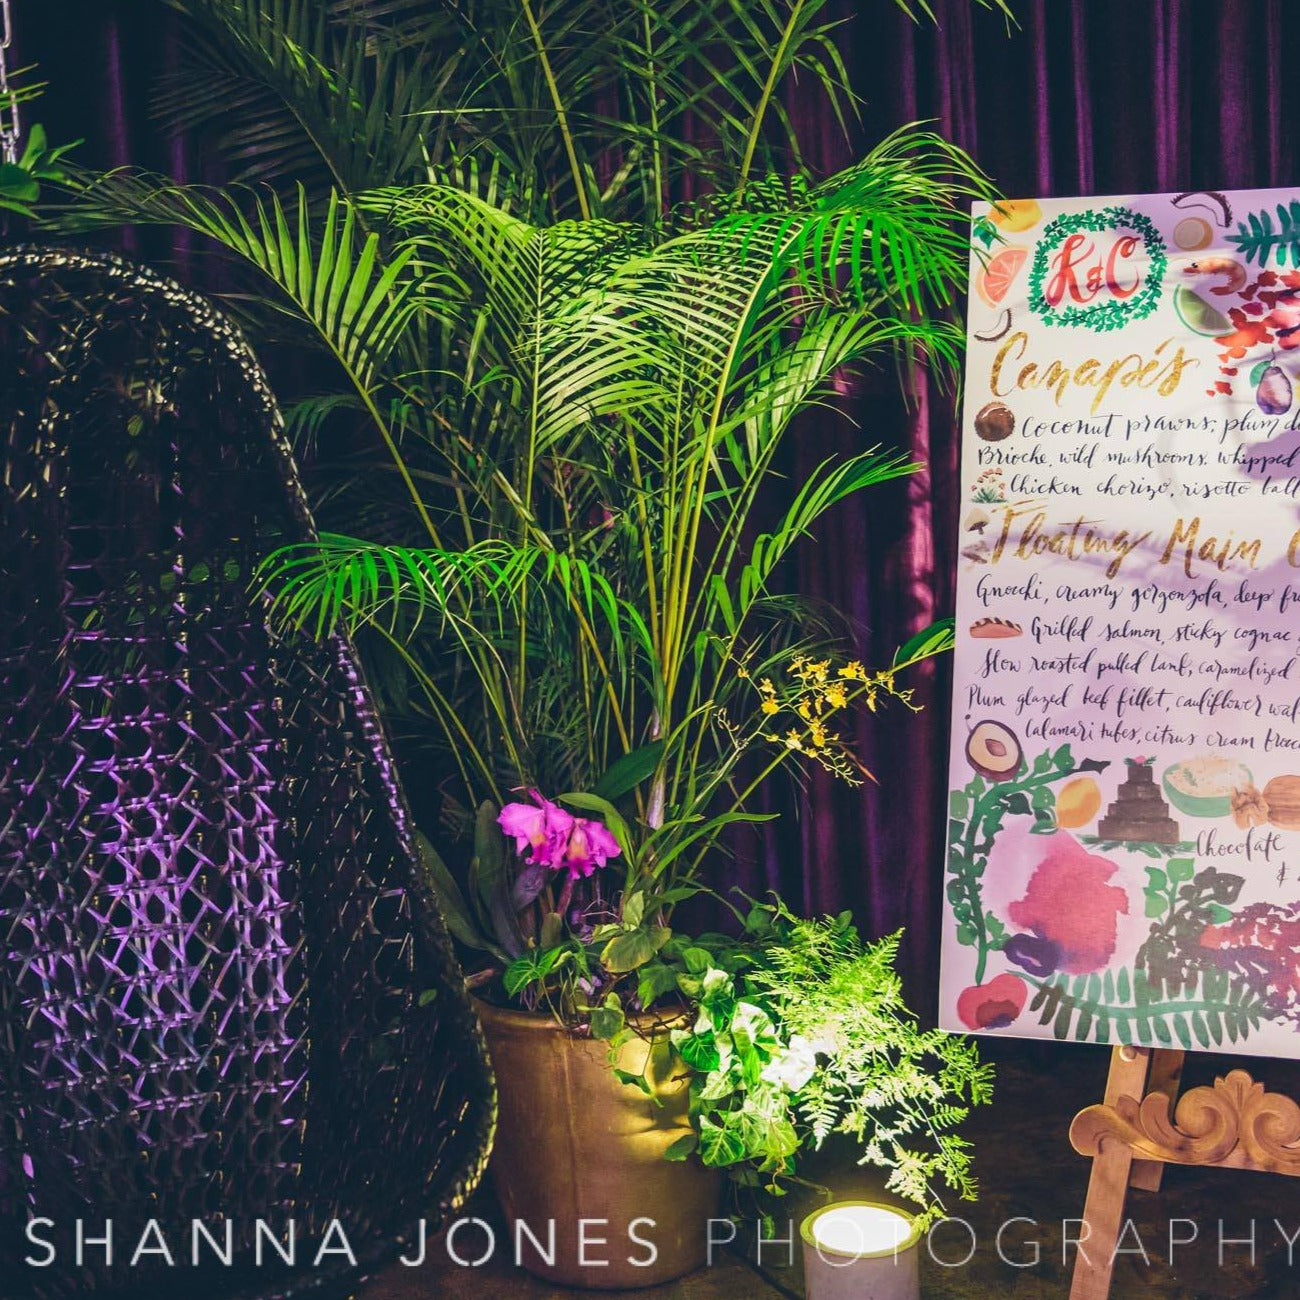 K & C
Canapés
Coconut prawns, plum
Brioche, wild mushrooms, whipped
Chicken chorizo, risotto
Floating Main
Gnocchi, creamy gorgonzola, deep
Grilled salmon sticky cognac
Slow roasted pulled lamb, caramelized
Plum glazed beef fillet, cauliflower
Calamari tubes, citrus cream
Chocolate
&
SHANNA JONES PHOTOGRAPHY